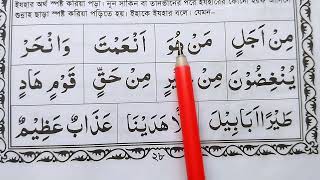 ইযহার অর্থ স্পষ্ট করিয়া পড়া। নূন সাকিন বা তানভীনের পরে ইযহারের
গুন্নাহ ছাড়া স্পষ্ট করিয়া পড়িতে হয়। ইহাকে ইযহার বলে। যেমন-
مِنْ اَجَلٍ مَنْ هُوَ اَنْعَمْتَ وَانْحَرْ
يُنْغِضُوْنَ مِنْ حَقٍّ قَوْمٍ هَادٍ
طَيْرًا اَبَابِيْلَ هَدَيْنَا عَذَابٌ عَظِيْمٌ
২৮